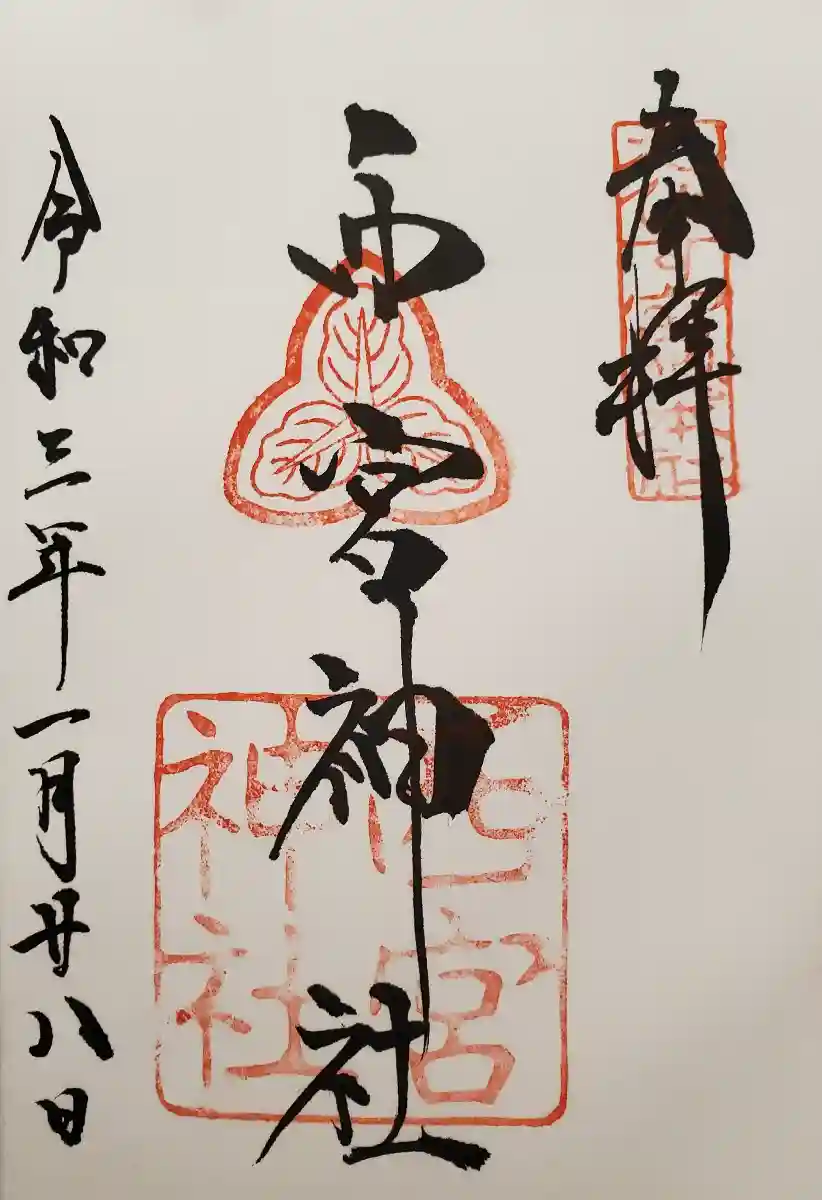 奉拝
西宮神社
西宮
神社
令和三年一月廿八日